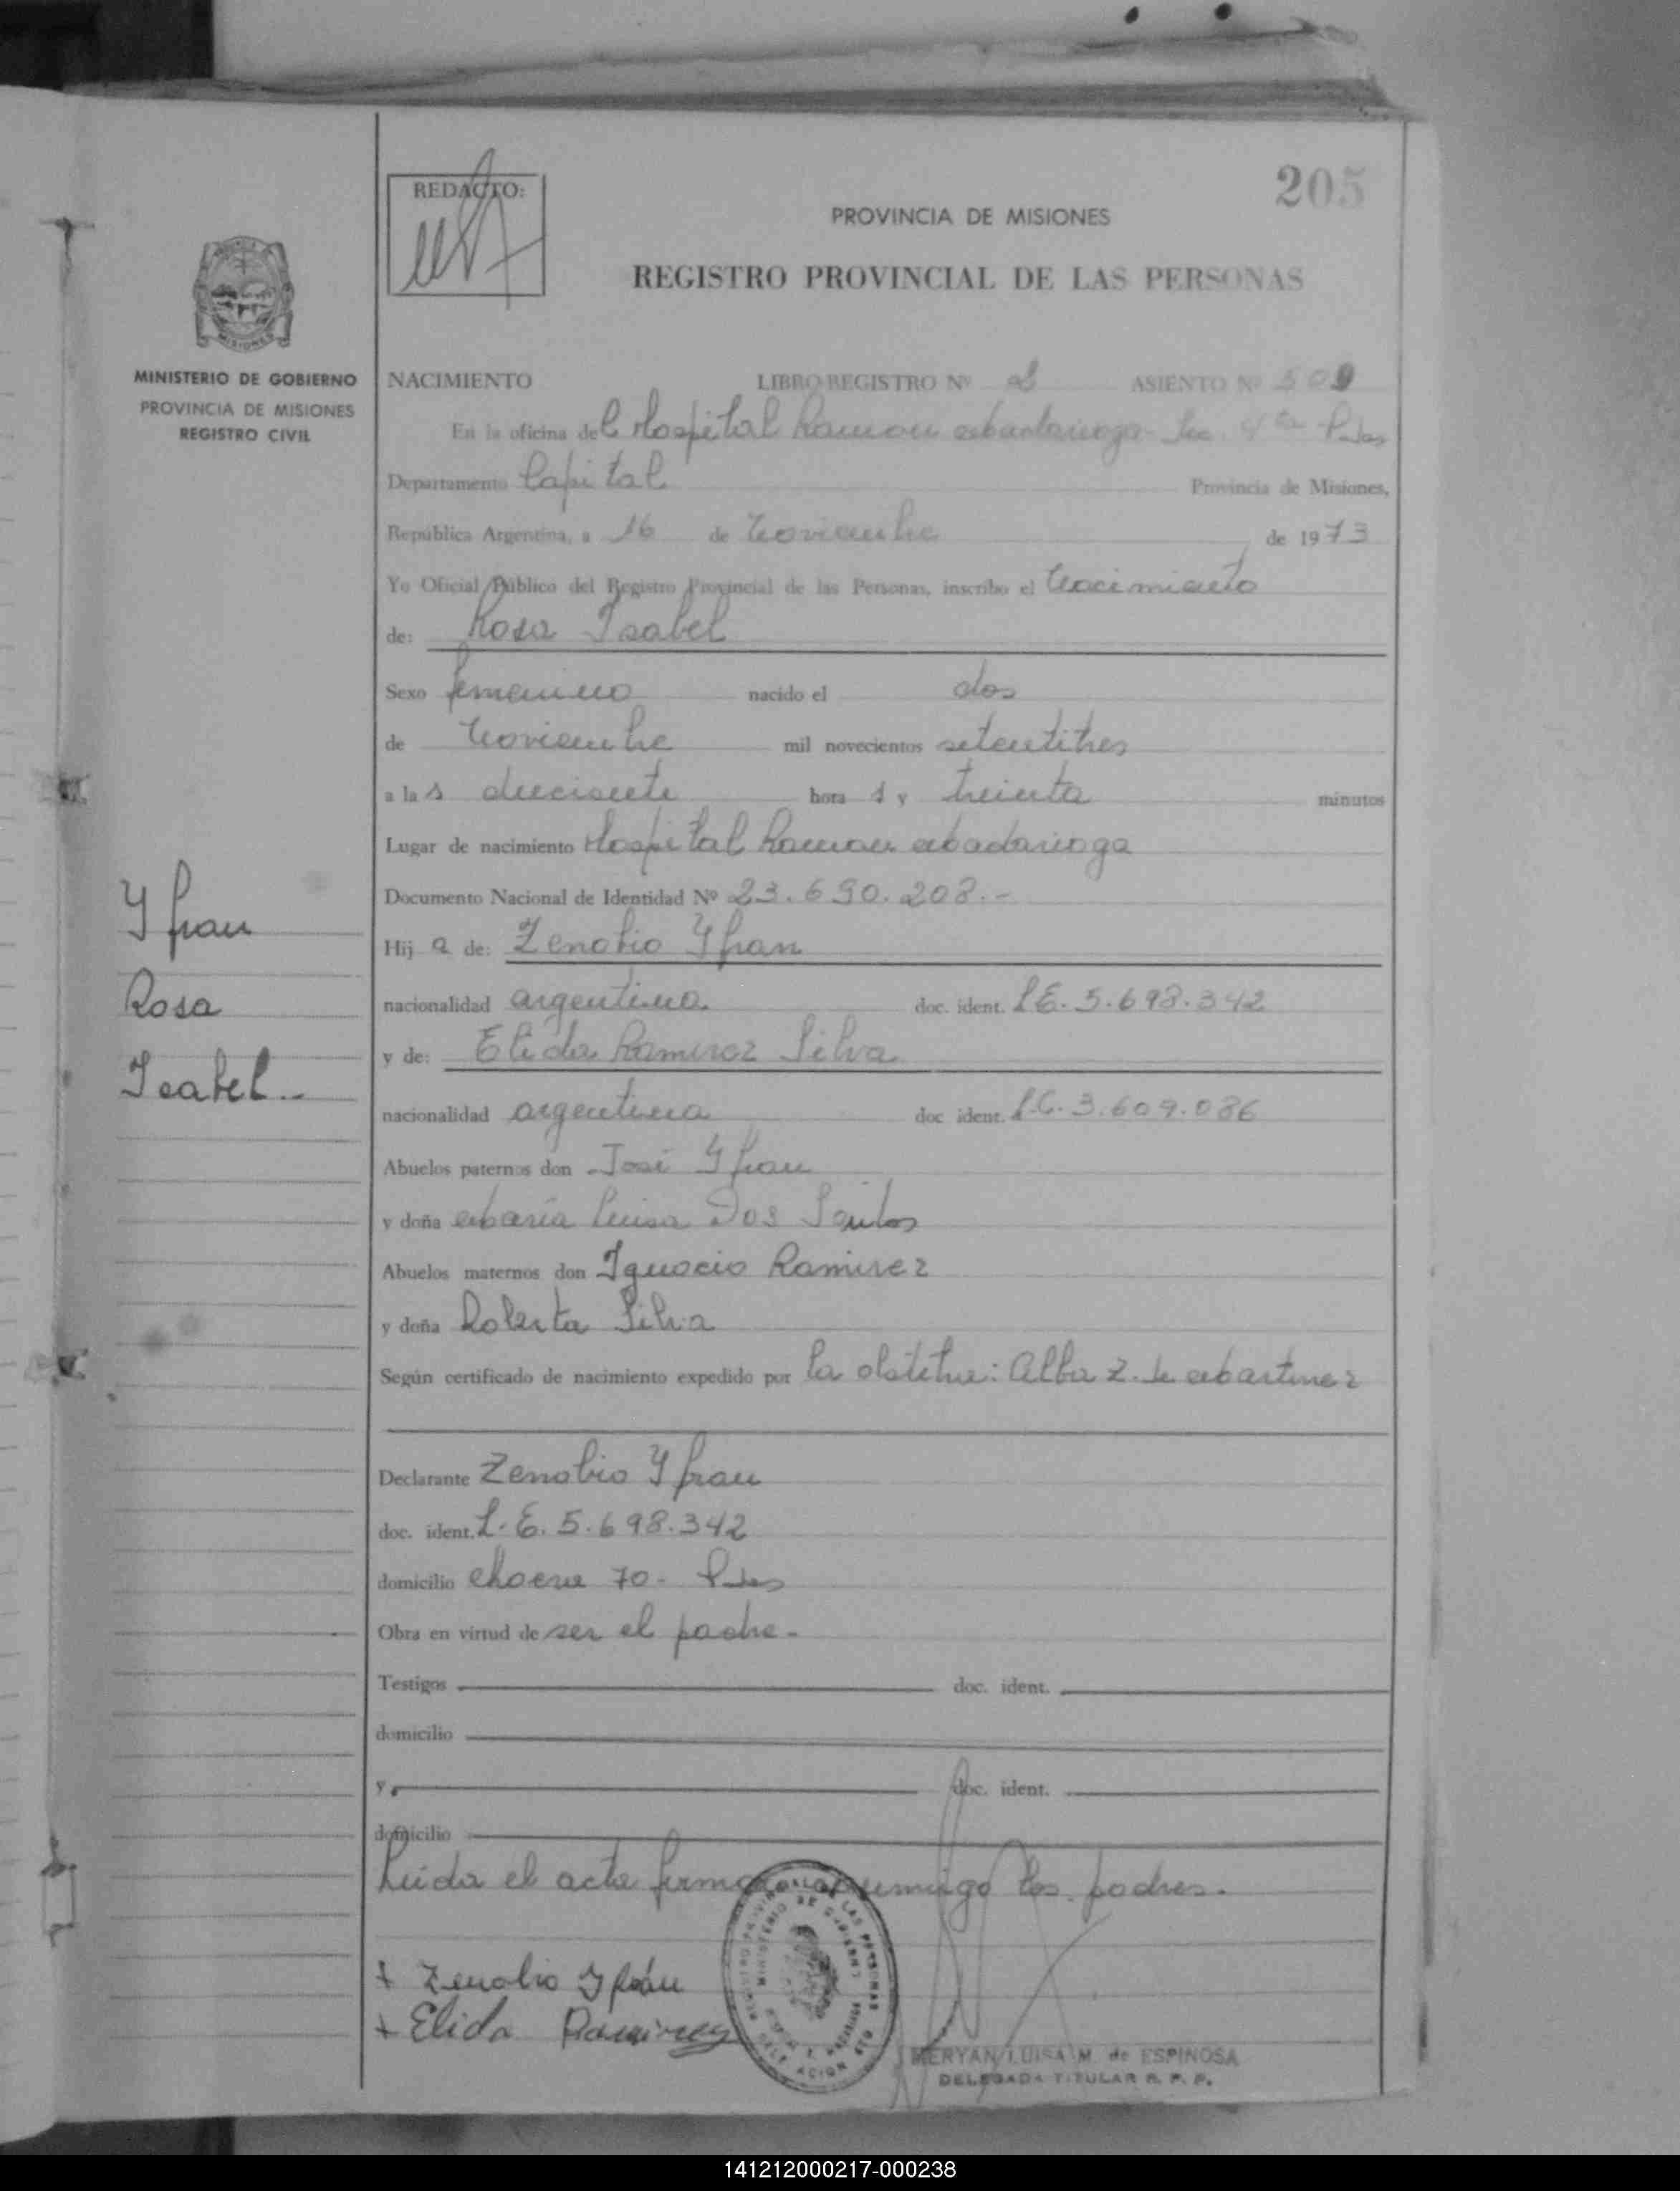 205
REDACTO:
PROVINCIA DE MISIONES
REGISTRO PROVINCIAL DE LAS PERSONAS
MISIONES
MINISTERIO DE GOBIERNO
PROVINCIA DE MISIONES
REGISTRO CIVIL
NACIMIENTO LIBRO REGISTRO Nº 2 ASIENTO Nº 509
En la oficina del Hospital Ramon Madariaga - Sec. 4ta Pdas
Departamento Capital Provincia de Misiones,
República Argentina, a 16 de Noviembre de 1973
Yo Oficial Público del Registro Provincial de las Personas, inscribo el Nacimiento
de: Rosa Isabel
Sexo femenino nacido el dos
de Noviembre mil novecientos setentitres
a las diecisiete horas y treinta minutos
Lugar de nacimiento Hospital Ramon Madariaga
Documento Nacional de Identidad Nº 23.690.208.-
Hija de: Zenobio Yfran
nacionalidad argentina doc. ident. L.E. 5.698.342
y de: Elida Ramirez Silva
nacionalidad argentina doc ident. L.C. 3.609.086
Abuelos paternos don José Yfran
y doña Maria Luisa Dos Santos
Abuelos maternos don Ignacio Ramirez
y doña Roberta Silva
Según certificado de nacimiento expedido por la obstetra: Alba Z. de Martinez
Declarante Zenobio Yfran
doc. ident. L.E. 5.698.342
domicilio Chacra 70 - Pdas
Obra en virtud de ser el padre -
Testigos doc. ident.
domicilio
y doc. ident.
domicilio
Leida el acta firman conmigo los padres.
Zenobio Yfrán
Elida Ramirez
MERYAN LUISA M. de ESPINOSA
DELEGADA TITULAR R. P. P.
Yfran
Rosa
Isabel -
141212000217-000238